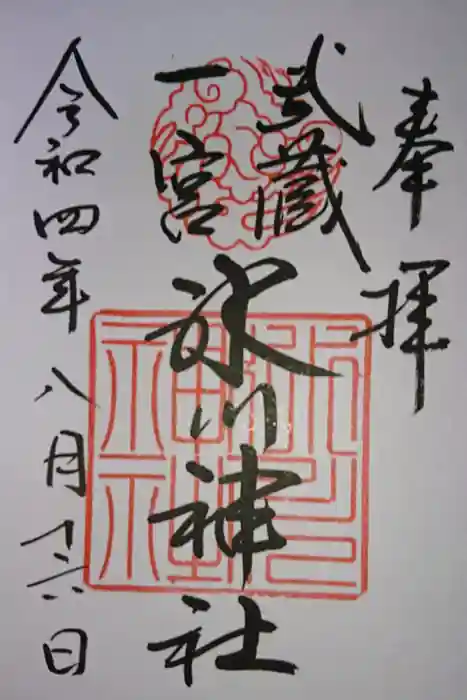 奉拝
武蔵
一宮
氷川神社
令和四年八月十六日